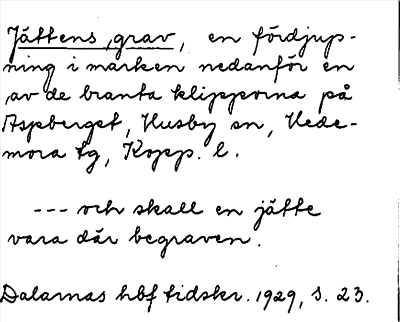 Jättens grav, en fördjup-
ning i marken nedanför en
av de branta klipporna på
Aspberget, Husby sn, Hede-
mora tg, Kopp. l.
--- och skall en jätte
vara där begraven.
Dalarnas hbf tidskr. 1929, s. 23.